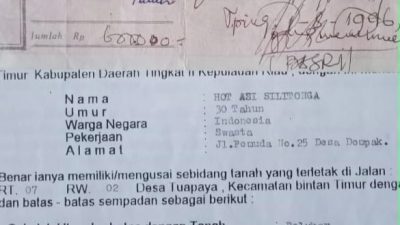 Jumlah Rp 600000.-
Tping 1-8-1996
Timur Kabupaten Daerah Tingkat II Kepulauan Riau, dengan
Nama : HOT ASI SILITONGA
Umur : 30 Tahun
Warga Negara : Indonesia
Pekerjaan : Swasta
Alamat : Jl.Pemuda No.25 Desa Dompak.
Benar ianya memiliki/mengusai sebidang tanah yang terletak di Jalan :
RT. 07 RW. 02 Desa Tuapaya , Kecamatan bintan Timur denga
dan batas - batas sempadan sebagai berikut :